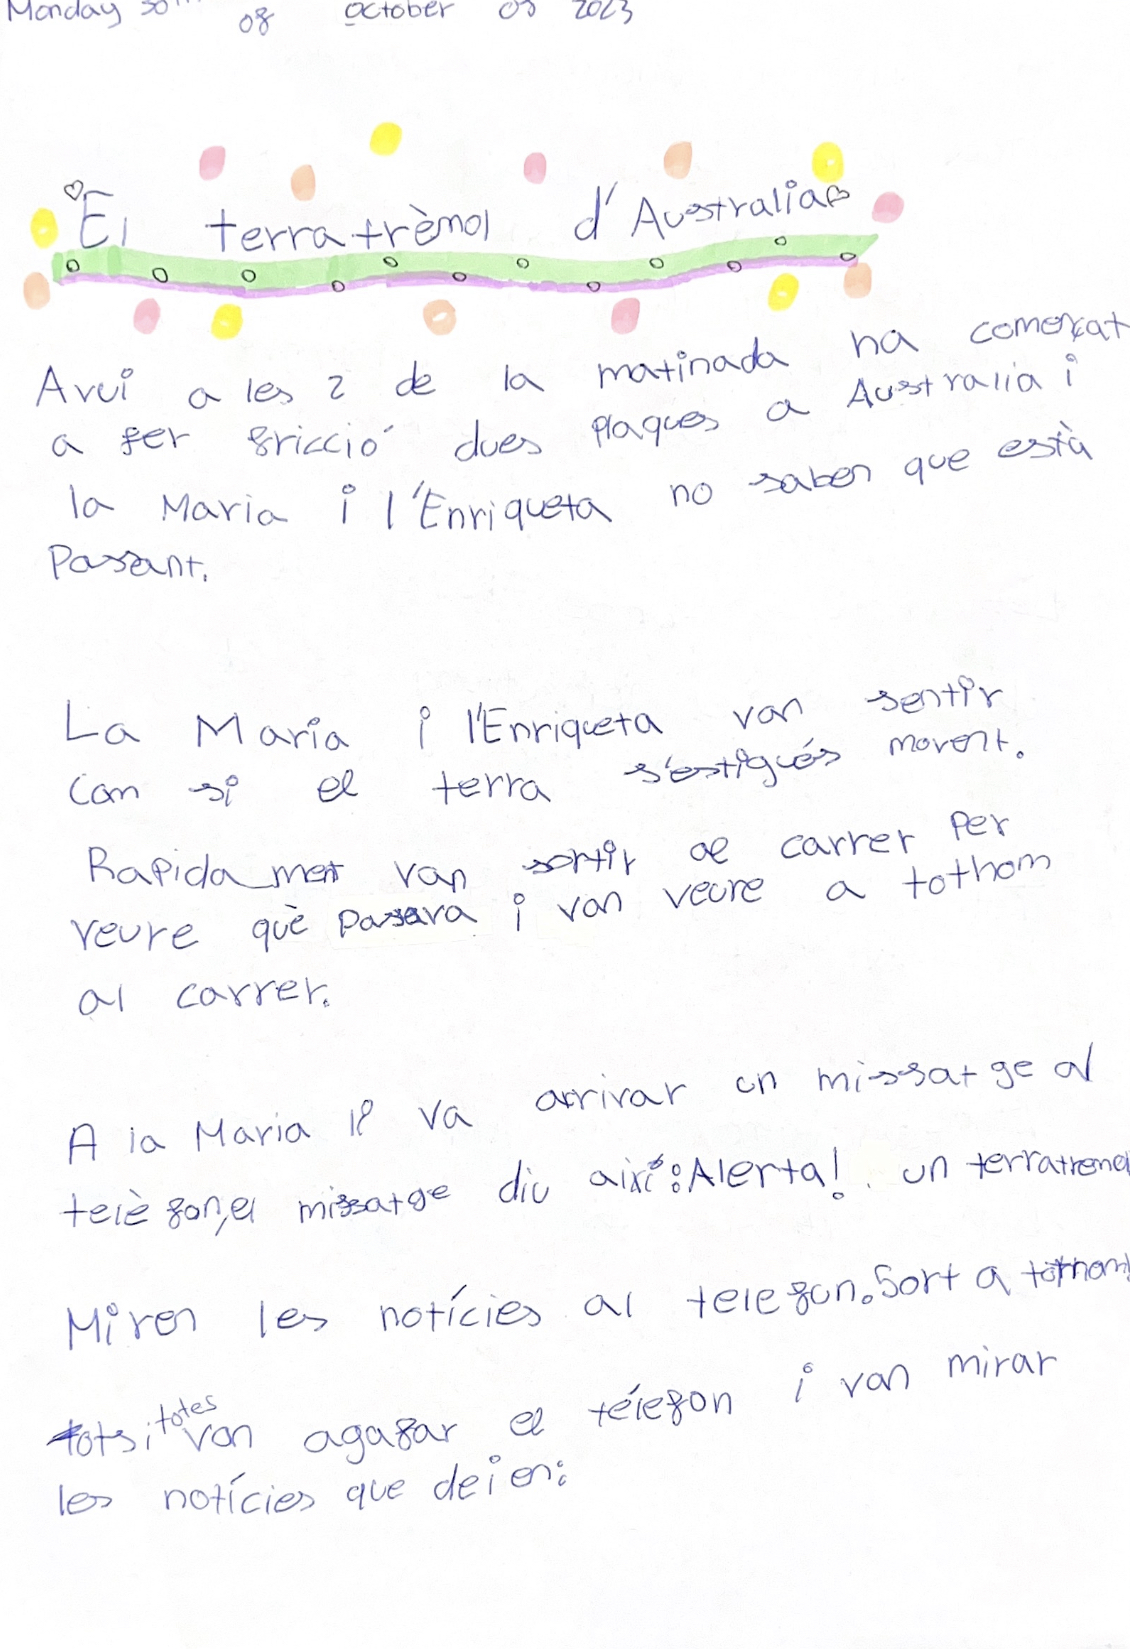 Monday 30th of October of 2023
El terratrèmol d'Australia
Avui a les 2 de la matinada ha començat
a fer fricció dues plaques a Australia i
la Maria i l'Enriqueta no saben que està
Passant.
La Maria i l'Enriqueta van sentir
Com si el terra s'estigués movent.
Rapidament van sortir al carrer Per
veure què Passava i van veure a tothom
al carrer.
A la Maria li va arrivar un missatge al
telèfon, el missatge diu així: Alerta! un terratremol
Miren les notícies al telefon. Sort a tothom!
tots i totes van agafar el télefon i van mirar
les notícies que deien: